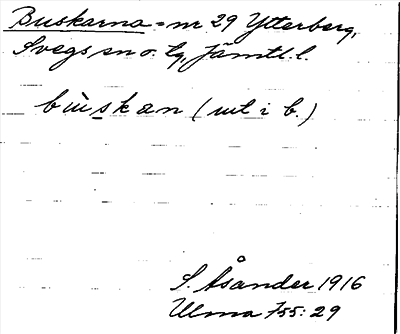 Buskarna = nr 29 Ytterberg,
Svegs sn o. tg, Jämtl. l.
bùskan (ut i b.)
S. Åsander 1916
Ulma 755:29